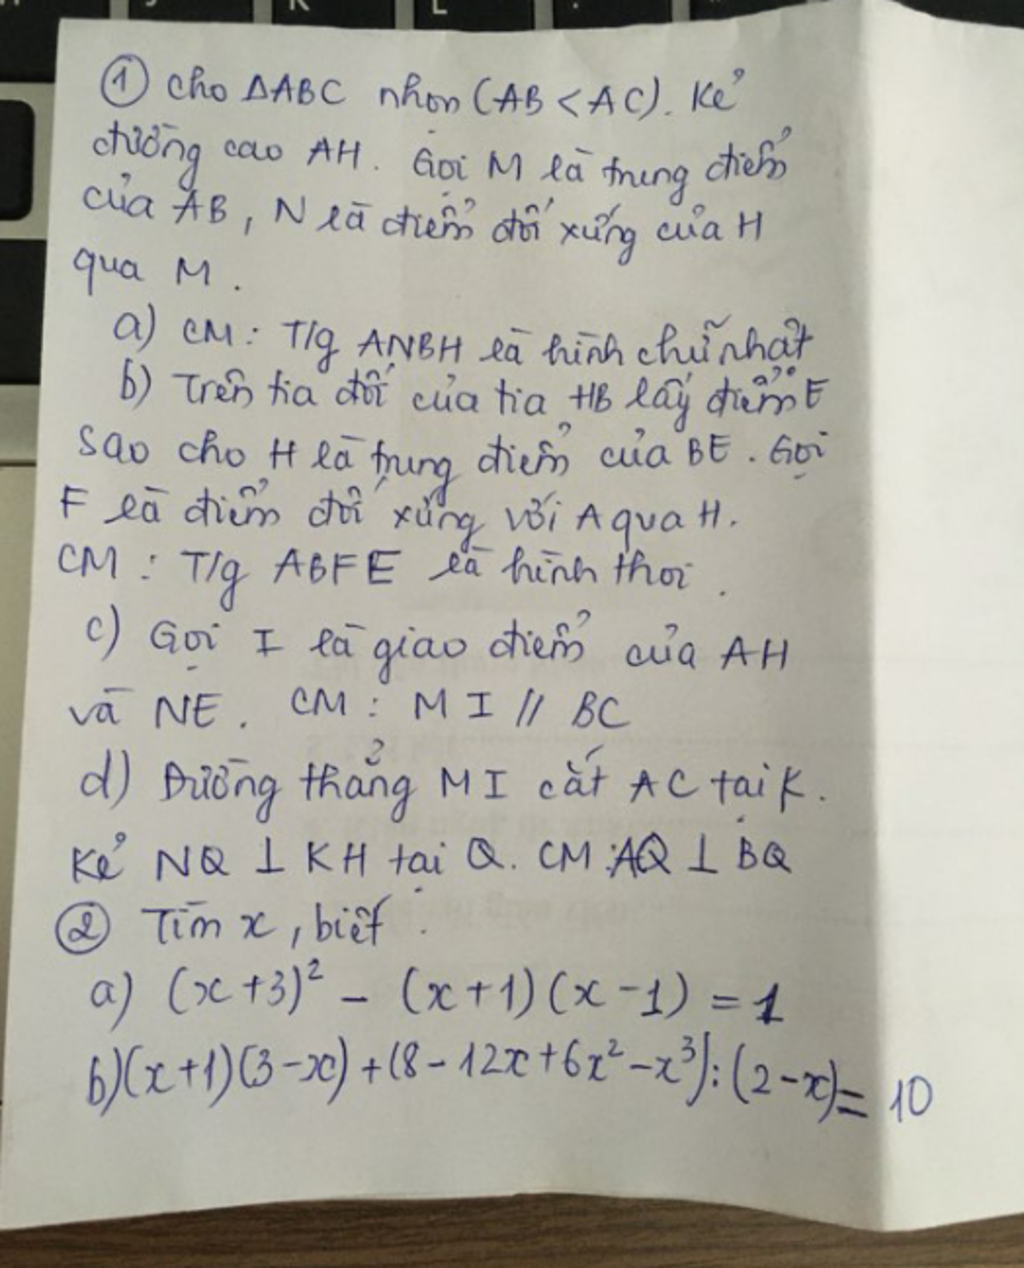 ① Cho ΔABC nhọn (AB < AC). Kẻ
đường cao AH. Gọi M là trung điểm
của AB, N là điểm đối xứng của H
qua M.
a) CM: T/g ANBH là hình chữ nhật
b) Trên tia đối của tia HB lấy điểm E
sao cho H là trung điểm của BE. Gọi
F là điểm đối xứng với A qua H.
CM: T/g ABFE là hình thoi.
c) Gọi I là giao điểm của AH
và NE. CM: MI // BC
d) Đường thẳng MI cắt AC tại K.
Kẻ NQ ⊥ KH tại Q. CM: AQ ⊥ BQ
② Tìm x, biết.
a) (x+3)² - (x+1)(x-1) = 1
b) (x+1)(3-x) + (8-12x+6x²-x³):(2-x) = 10